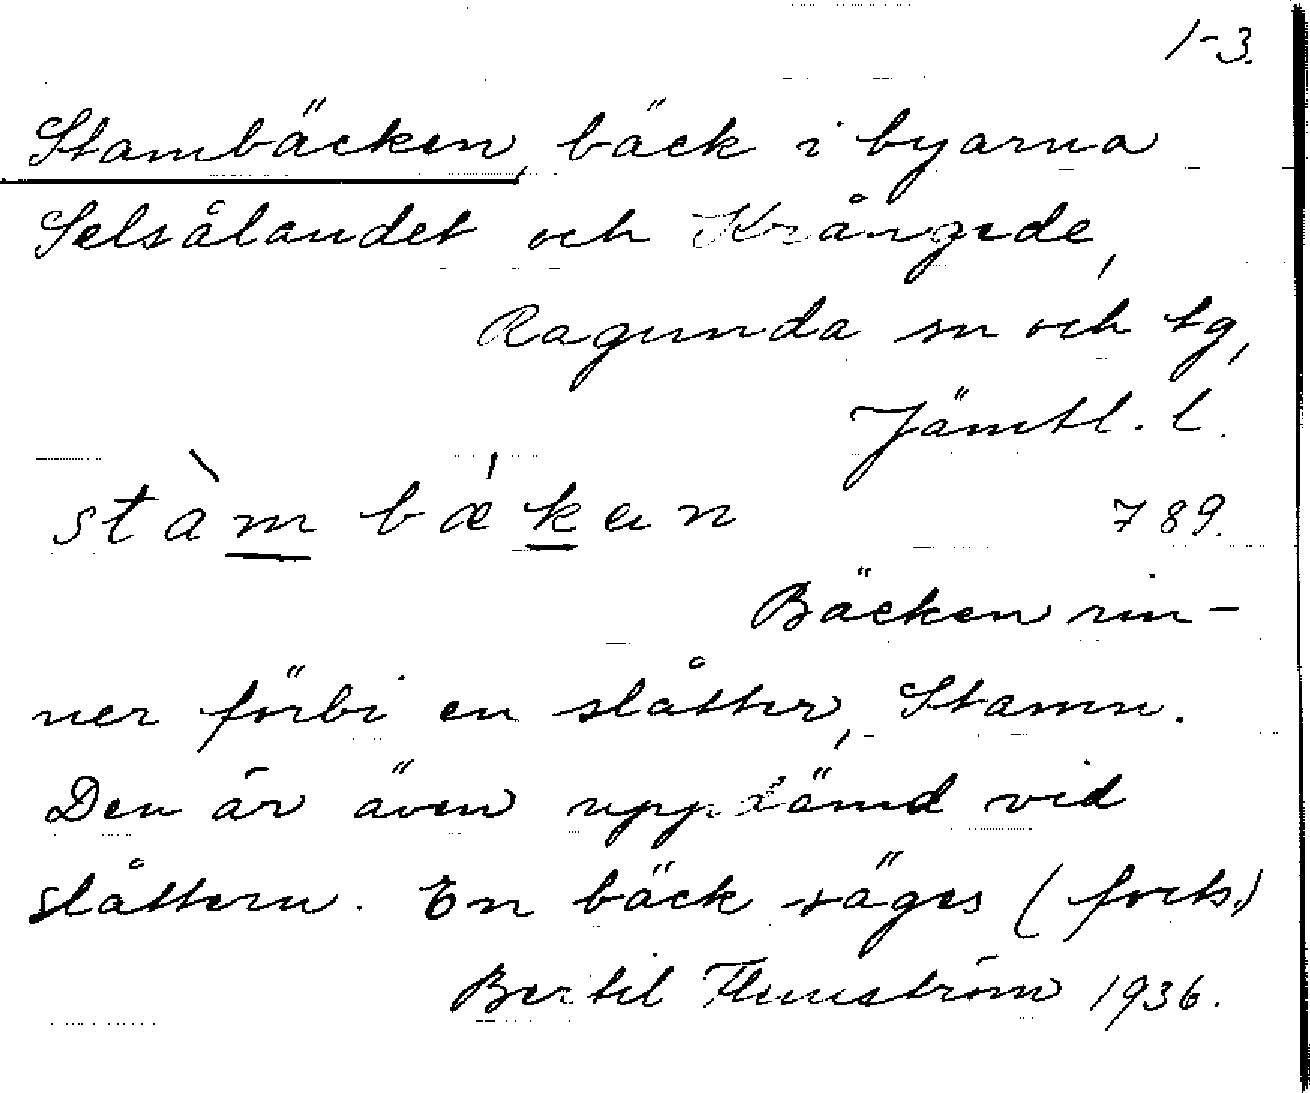 1-3.
Stambäcken, bäck i byarna
Selsålandet och Krångede,
Ragunda sn och tg,
Jämtl. l.
stàm bǽken
789.
Bäcken rin-
ner förbi en slåtter, Stamn.
Den är även uppdämd vid
slåttern. En bäck säges (forts.)
Bertil Flemström 1936.